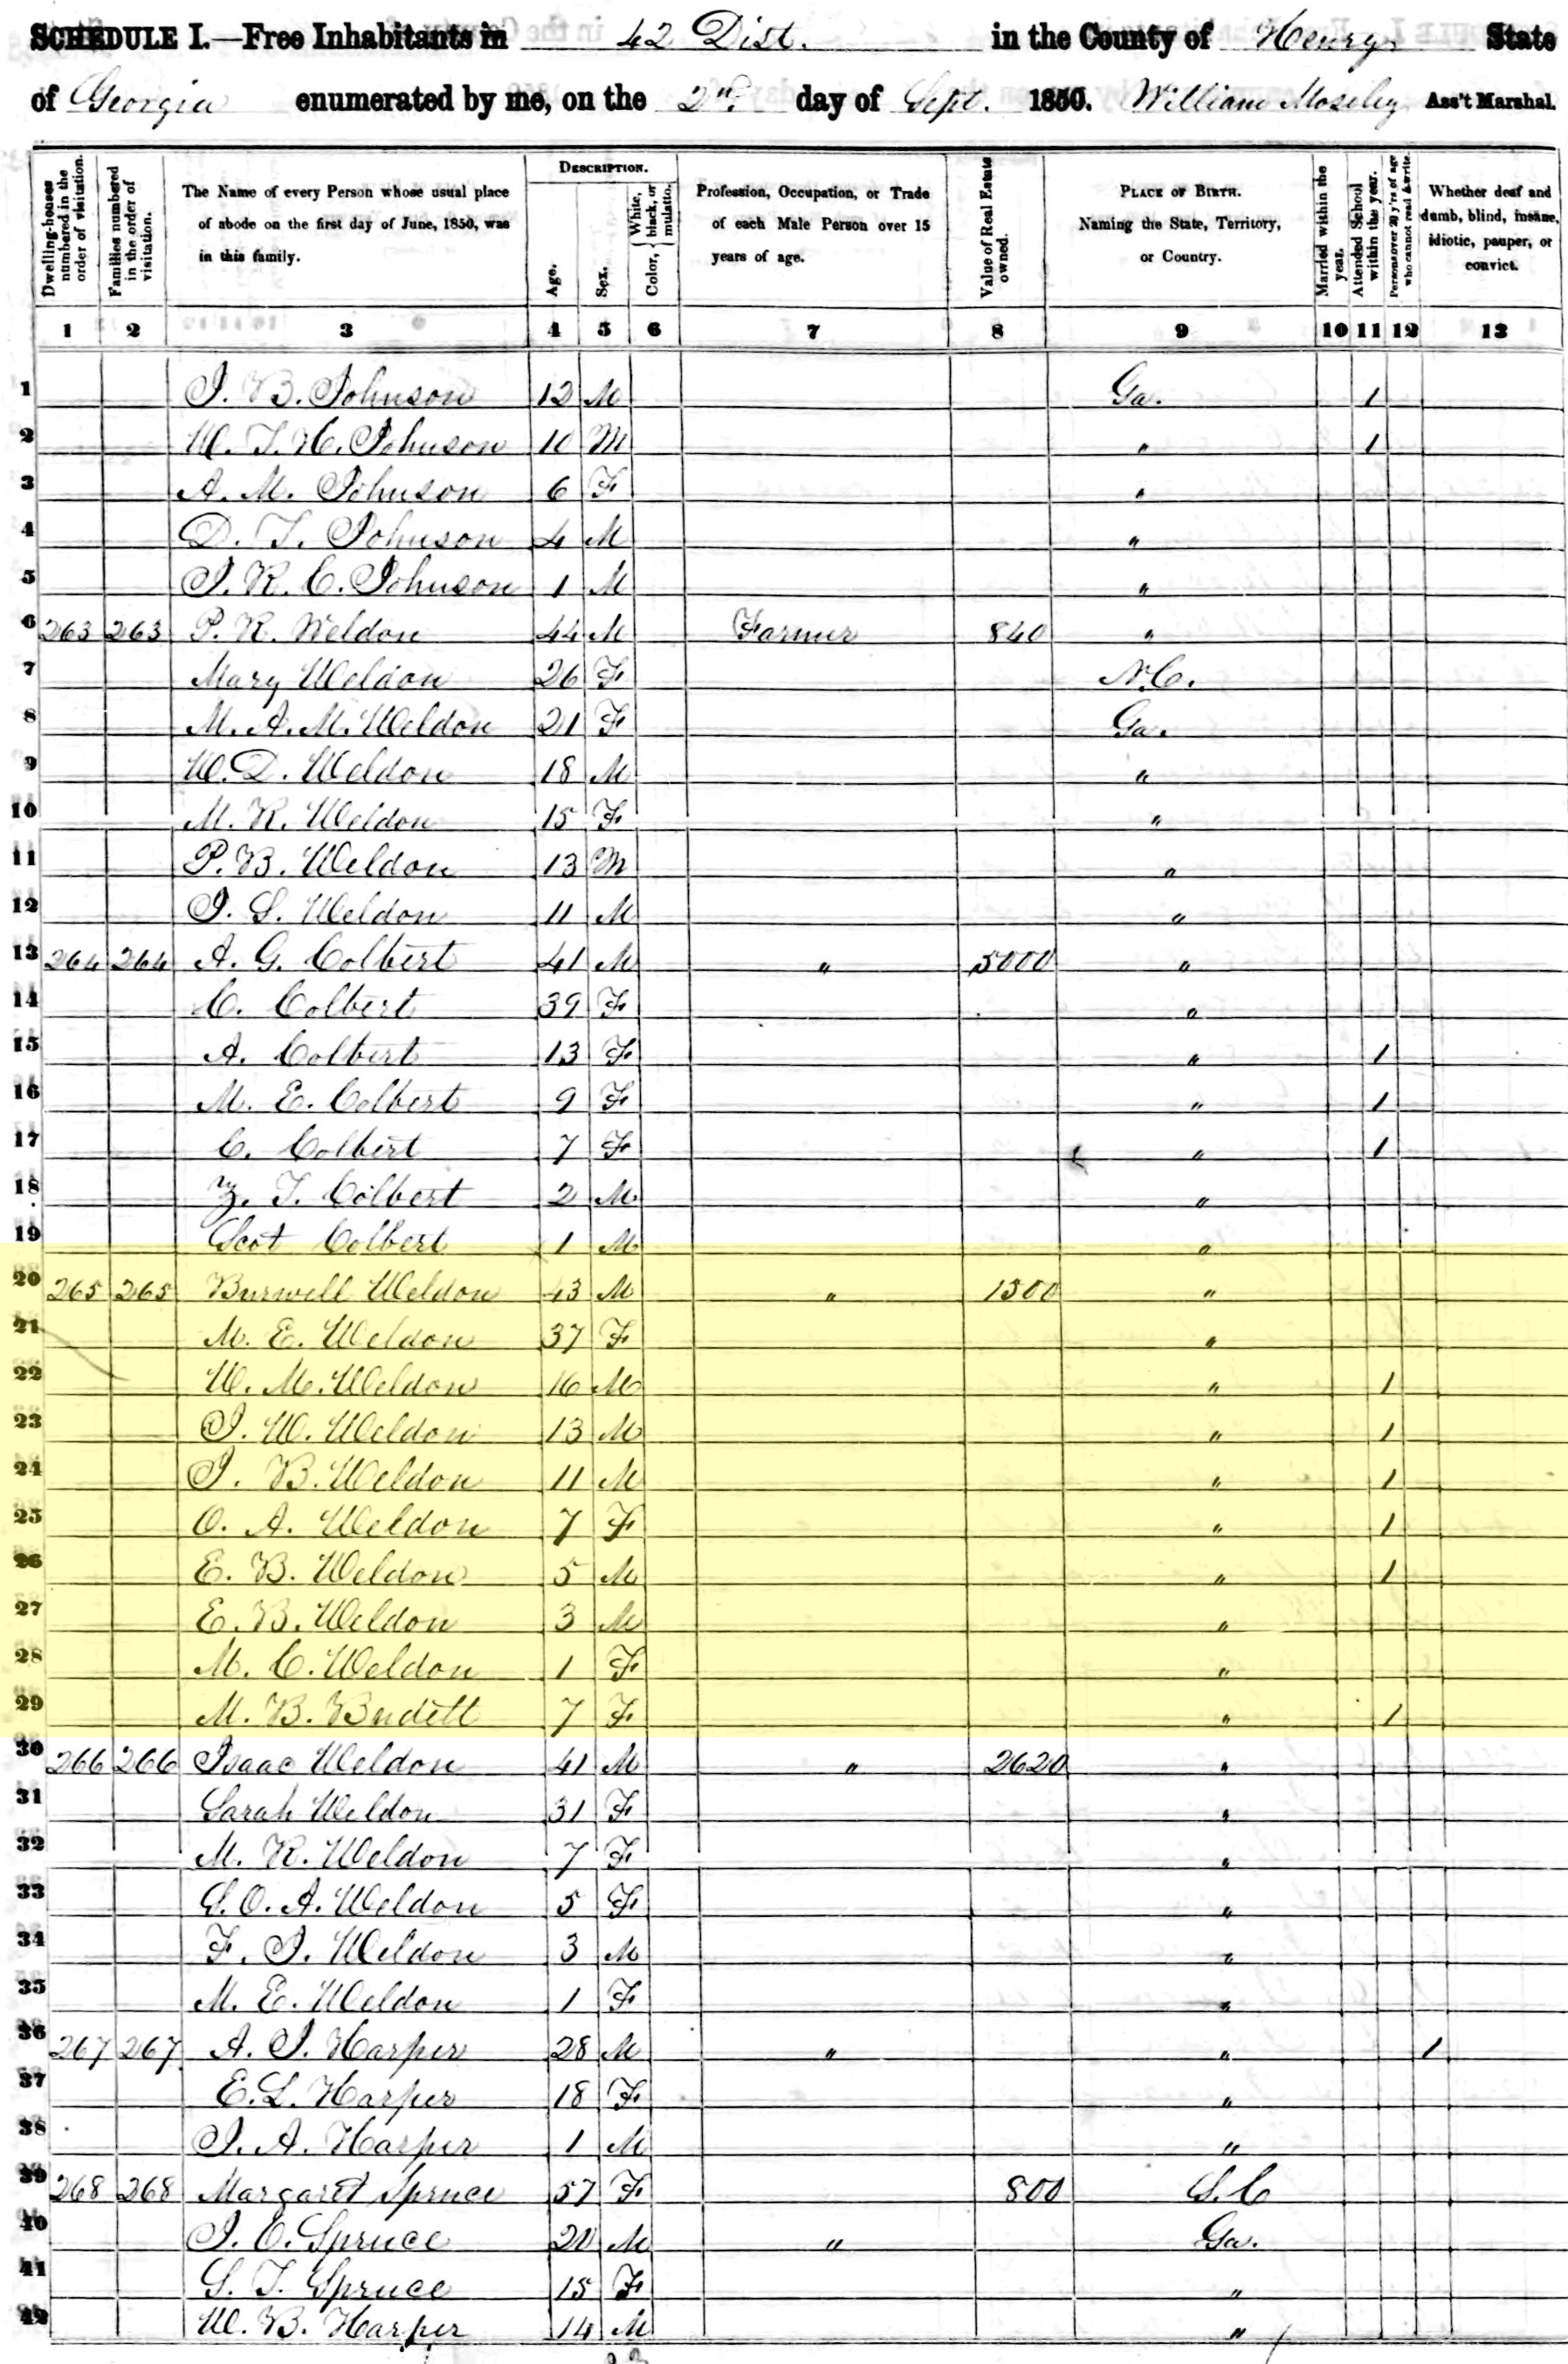 SCHEDULE I.—Free Inhabitants in 42 Dist. in the County of Henry State
of Georgia enumerated by me, on the 2nd day of Sept. 1850. William Moseley Ass't Marshal.
Dwelling-houses numbered in the order of visitation.
Families numbered in the order of visitation.
The Name of every Person whose usual place of abode on the first day of June, 1850, was in this family.
DESCRIPTION.
Age.
Sex.
Color, { White, black, or mulatto.
Profession, Occupation, or Trade of each Male Person over 15 years of age.
Value of Real Estate owned.
PLACE OF BIRTH. Naming the State, Territory, or Country.
Married within the year.
Attended School within the year.
Persons over 20 y'rs of age who cannot read & write.
Whether deaf and dumb, blind, insane, idiotic, pauper, or convict.
1 2 3 4 5 6 7 8 9 10 11 12 13
1 J. B. Johnson 12 M Ga. 1
2 W. T. H. Johnson 10 M " 1
3 A. M. Johnson 6 F "
4 D. T. Johnson 4 M "
5 J. R. C. Johnson 1 M "
6 263 263 P. R. Weldon 44 M Farmer 840 "
7 Mary Weldon 26 F N.C.
8 M. A. M. Weldon 21 F Ga.
9 W. D. Weldon 18 M "
10 M. R. Weldon 15 F "
11 P. B. Weldon 13 M "
12 J. S. Weldon 11 M "
13 264 264 A. G. Colbert 41 M " 5000 "
14 C. Colbert 39 F "
15 A. Colbert 13 F " 1
16 M. E. Colbert 9 F " 1
17 C. Colbert 7 F " 1
18 Z. T. Colbert 2 M "
19 Scot Colbert 1 M "
20 265 265 Burwell Weldon 43 M " 1500 "
21 M. E. Weldon 37 F "
22 W. M. Weldon 16 M " 1
23 J. W. Weldon 13 M " 1
24 J. B. Weldon 11 M " 1
25 O. A. Weldon 7 F " 1
26 E. B. Weldon 5 M " 1
27 E. B. Weldon 3 M "
28 M. C. Weldon 1 F "
29 M. B. 7 F " 1
30 266 266 Isaac Weldon 41 M " 2620 "
31 Sarah Weldon 31 F "
32 M. R. Weldon 7 F "
33 S. O. A. Weldon 5 F "
34 F. J. Weldon 3 M "
35 M. E. Weldon 1 F "
36 267 267 A. J. Harper 28 M " " 1
37 E. L. Harper 18 F "
38 J. A. Harper 1 M "
39 268 268 Margaret Spruce 57 F 800 S.C
40 J. E. Spruce 20 M " Ga.
41 S. T. Spruce 15 F "
42 W. B. Harper 14 M "